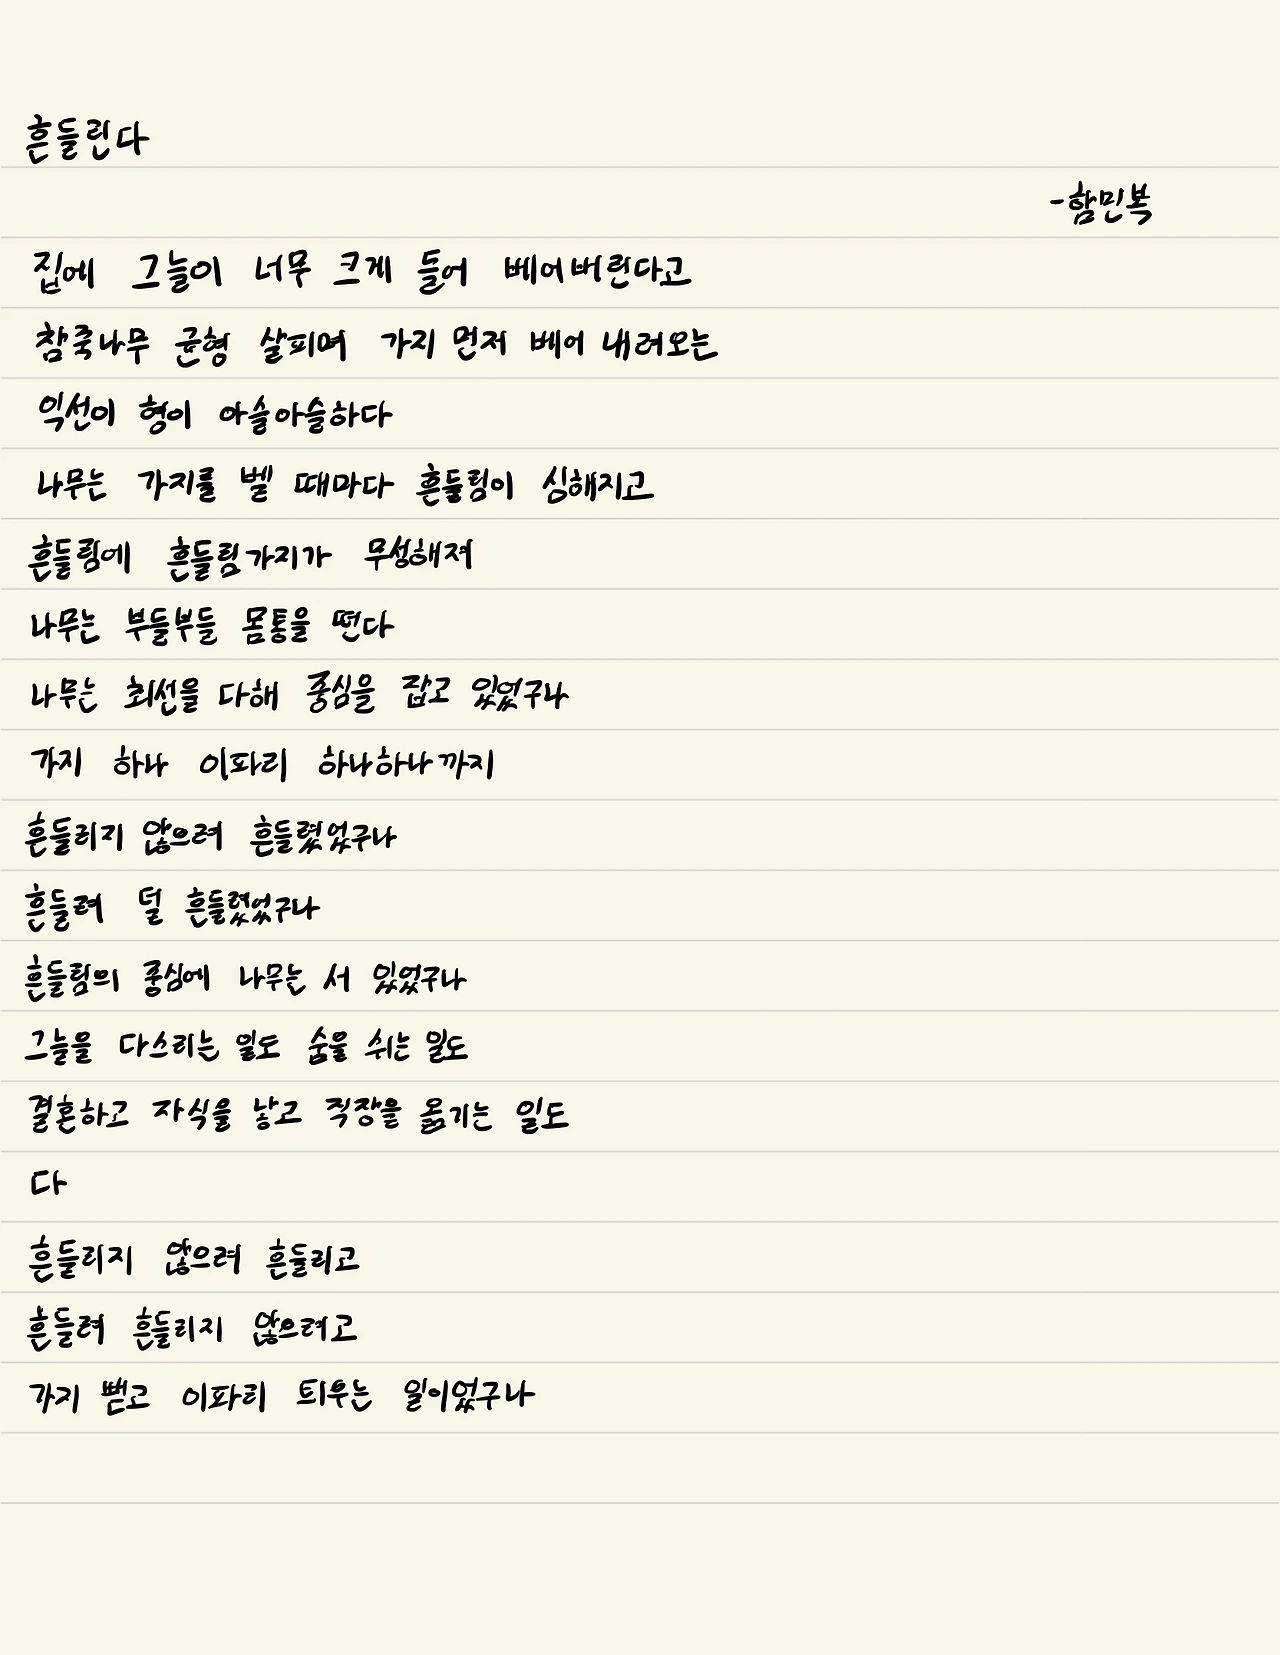 흔들린다
-함민복
집에 그늘이 너무 크게 들어 베어버린다고
참죽나무 균형 살피며 가지 먼저 베어 내려오는
익선이 형이 아슬아슬하다
나무는 가지를 벨 때마다 흔들림이 심해지고
흔들림에 흔들림 가지가 무성해져
나무는 부들부들 몸통을 떤다
나무는 최선을 다해 중심을 잡고 있었구나
가지 하나 이파리 하나하나까지
흔들리지 않으려 흔들렸었구나
흔들려 덜 흔들렸었구나
흔들림의 중심에 나무는 서 있었구나
그늘을 다스리는 일도 숨을 쉬는 일도
결혼하고 자식을 낳고 직장을 옮기는 일도
다
흔들리지 않으려 흔들리고
흔들려 흔들리지 않으려고
가지 뻗고 이파리 틔우는 일이었구나